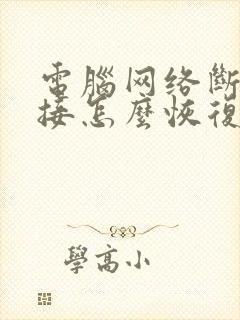 電腦网络斷
接怎麼恢復
學高小